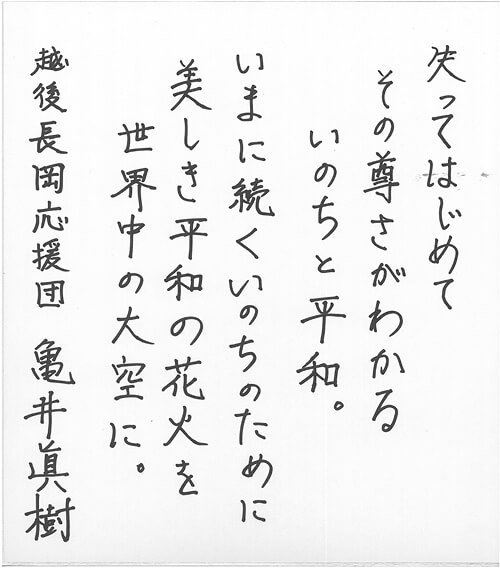 失ってはじめて
その尊さがわかる
いのちと平和。
いまに続くいのちのために
美しき平和の花火を
世界中の大空に。
越後長岡応援団 亀井眞樹